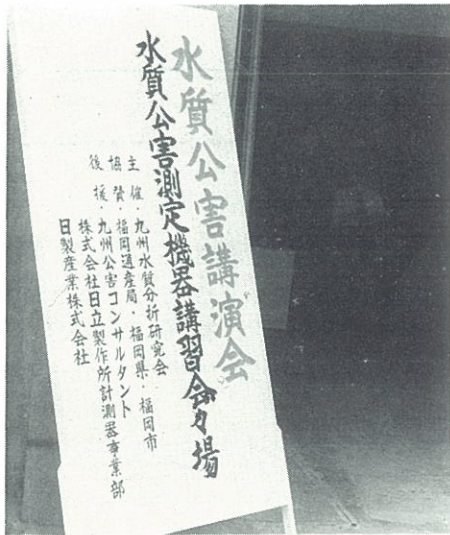 水質公害講演会
水質公害測定機器講習会々場
主催・九州水質分析研究会
協賛・福岡通産局・福岡県・福岡市
後援・九州公害コンサルタント
株式会社日立製作所計測器事業部
日製産業株式会社